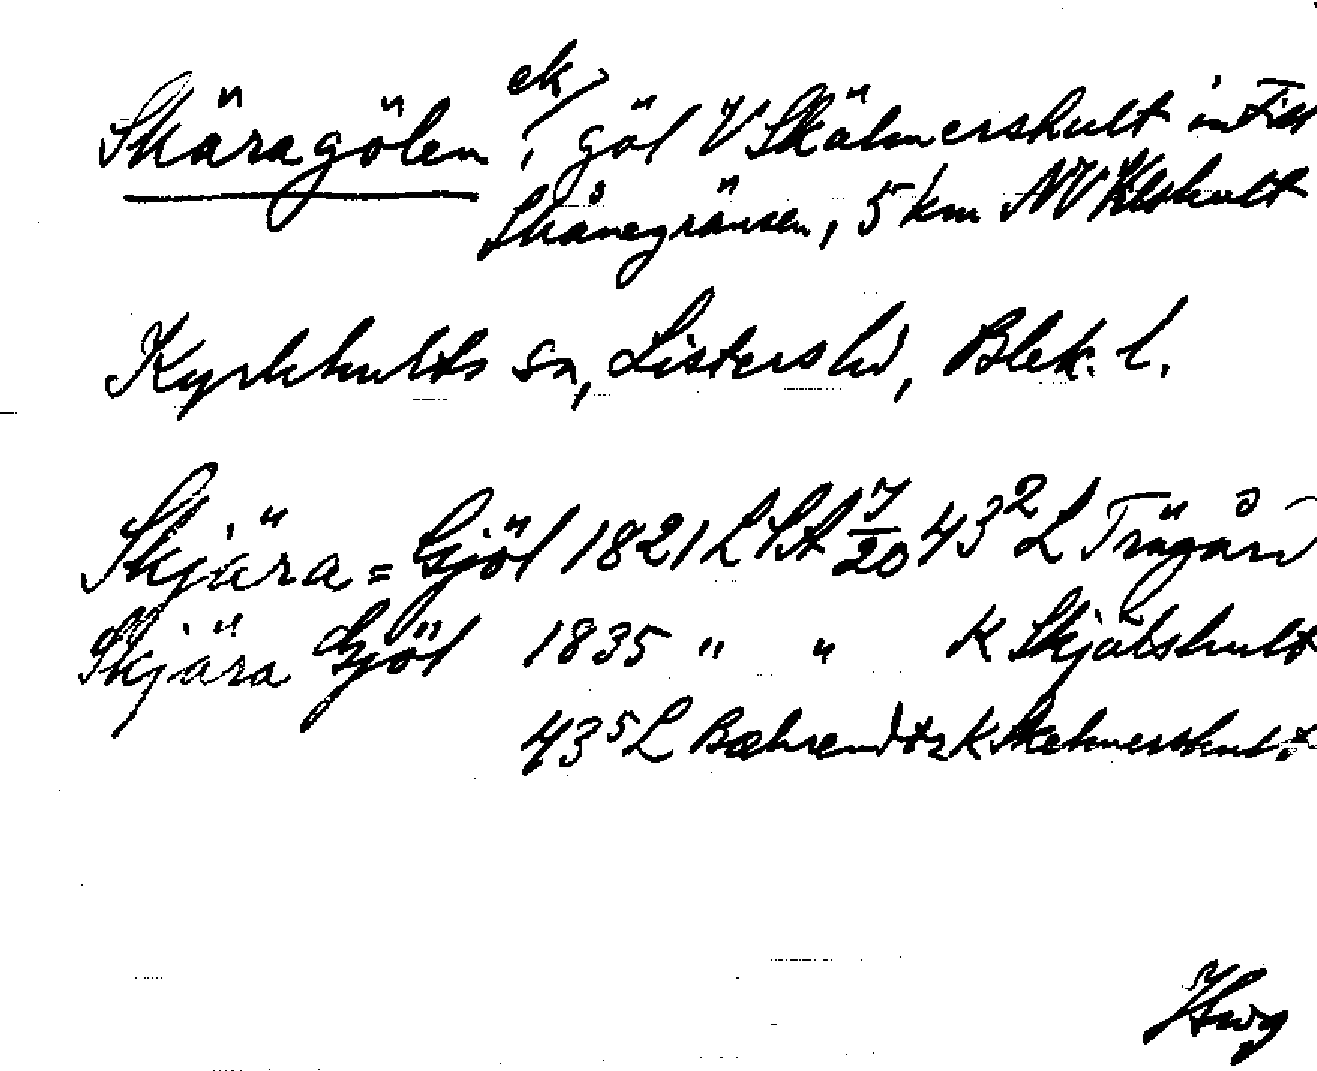 Skäragölen, ek göl V Skälmershult intill
Skånegränsen, 5 km NV Klshult
Kyrkhults sn, Listers hd, Blek. l.
Skjära = Gjöl 1821 LSA 7/20 43² L Trägård
Skjära Gjöl 1835 " " K Skjälshult
43⁵ L Bæhrendtz K Skelmershult